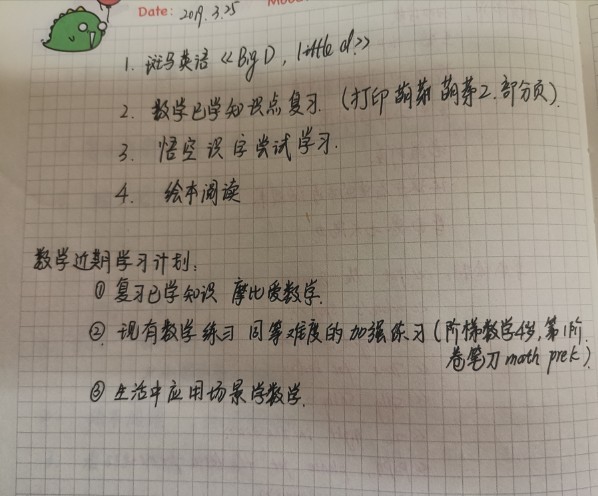 Date: 2019.3.25
1. 斑马英语《Big D, little d.》
2. 数学已学知识点复习.（打印萌芽 萌芽2.部分页）.
3. 悟空识字尝试学习.
4. 绘本阅读
数学近期学习计划:
① 复习已学知识 摩比爱数学.
② 现有数学练习 同等难度的加强练习（阶梯数学4岁,第1阶.
卷笔刀 math prek）
③ 生活中应用场景学数学.